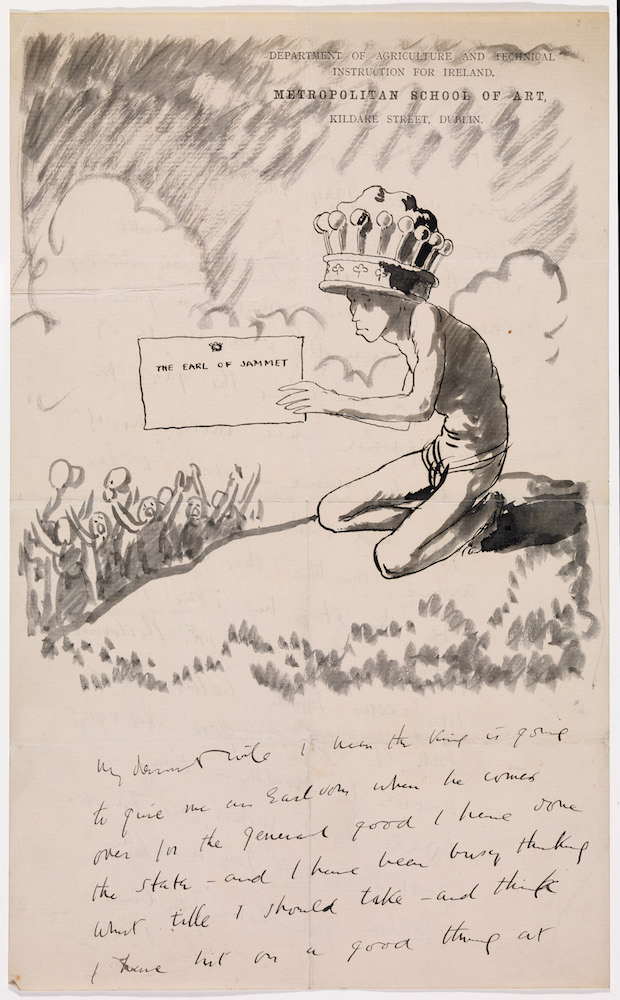 DEPARTMENT OF AGRICULTURE AND TECHNICAL
INSTRUCTION FOR IRELAND.
METROPOLITAN SCHOOL OF ART,
KILDARE STREET, DUBLIN.
THE EARL OF JAMMET
My dearest wife I hear the King is going
to give me an Earldom when he comes
over for the general good I have done
the state – and I have been busy thinking
what title I should take – and think
I have hit on a good thing at